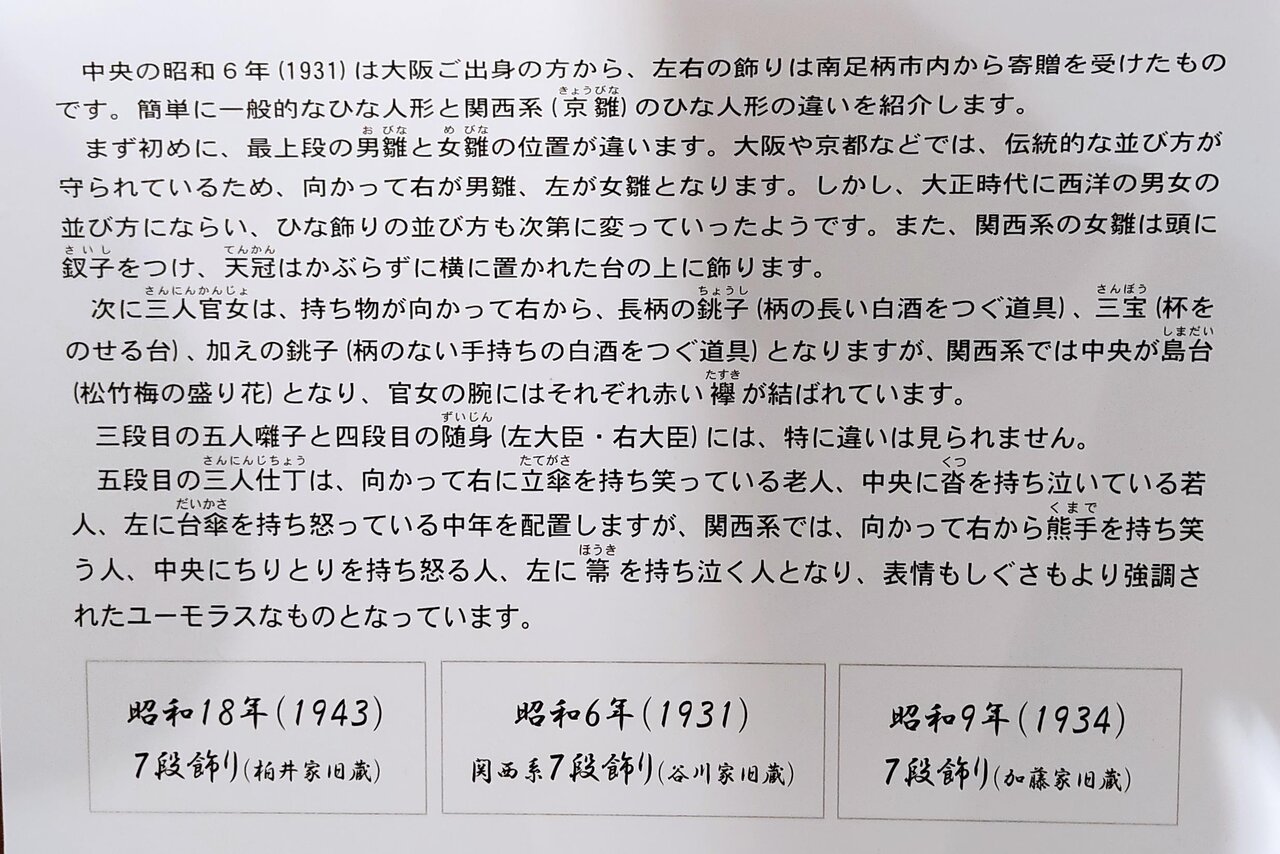 中央の昭和6年(1931)は大阪ご出身の方から、左右の飾りは南足柄市内から寄贈を受けたもの
きょうびな
です。簡単に一般的なひな人形と関西系(京雛)のひな人形の違いを紹介します。
おびな めびな
まず初めに、最上段の男雛と女雛の位置が違います。大阪や京都などでは、伝統的な並び方が
守られているため、向かって右が男雛、左が女雛となります。しかし、大正時代に西洋の男女の
並び方にならい、ひな飾りの並び方も次第に変っていったようです。また、関西系の女雛は頭に
さいし てんかん
釵子をつけ、天冠はかぶらずに横に置かれた台の上に飾ります。
さんにんかんじょ ちょうし さんぼう
次に三人官女は、持ち物が向かって右から、長柄の銚子(柄の長い白酒をつぐ道具)、三宝(杯を
しまだい
のせる台)、加えの銚子(柄のない手持ちの白酒をつぐ道具)となりますが、関西系では中央が島台
たすき
(松竹梅の盛り花)となり、官女の腕にはそれぞれ赤い襷が結ばれています。
ずいじん
三段目の五人囃子と四段目の随身(左大臣・右大臣)には、特に違いは見られません。
さんにんじちょう たてがさ くつ
五段目の三人仕丁は、向かって右に立傘を持ち笑っている老人、中央に沓を持ち泣いている若
だいかさ くまで
人、左に台傘を持ち怒っている中年を配置しますが、関西系では、向かって右から熊手を持ち笑
ほうき
う人、中央にちりとりを持ち怒る人、左に箒を持ち泣く人となり、表情もしぐさもより強調さ
れたユーモラスなものとなっています。
昭和18年(1943)
7段飾り(柏井家旧蔵)
昭和6年(1931)
関西系7段飾り(谷川家旧蔵)
昭和9年(1934)
7段飾り(加藤家旧蔵)